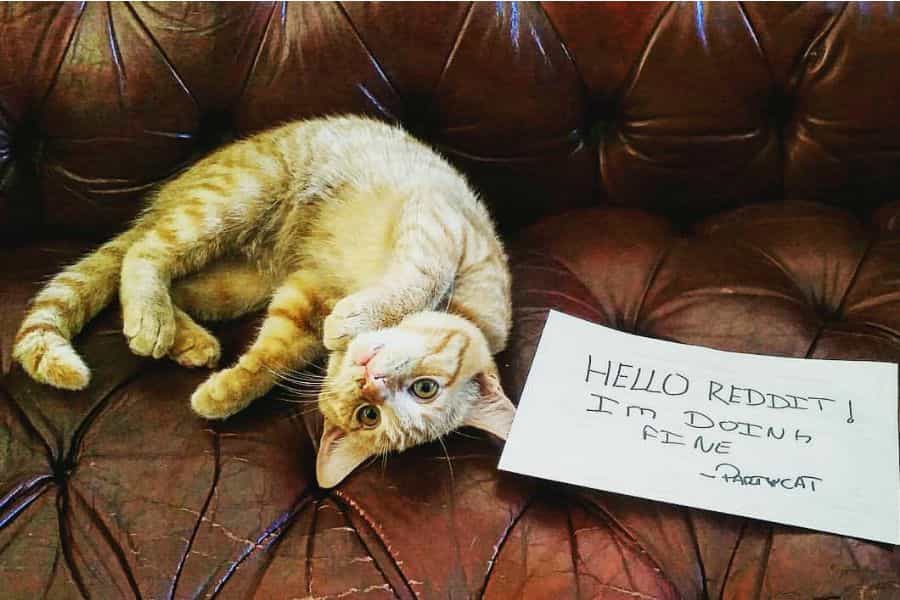 HELLO REDDIT!
IM DOING
FINE
-PARTYCAT